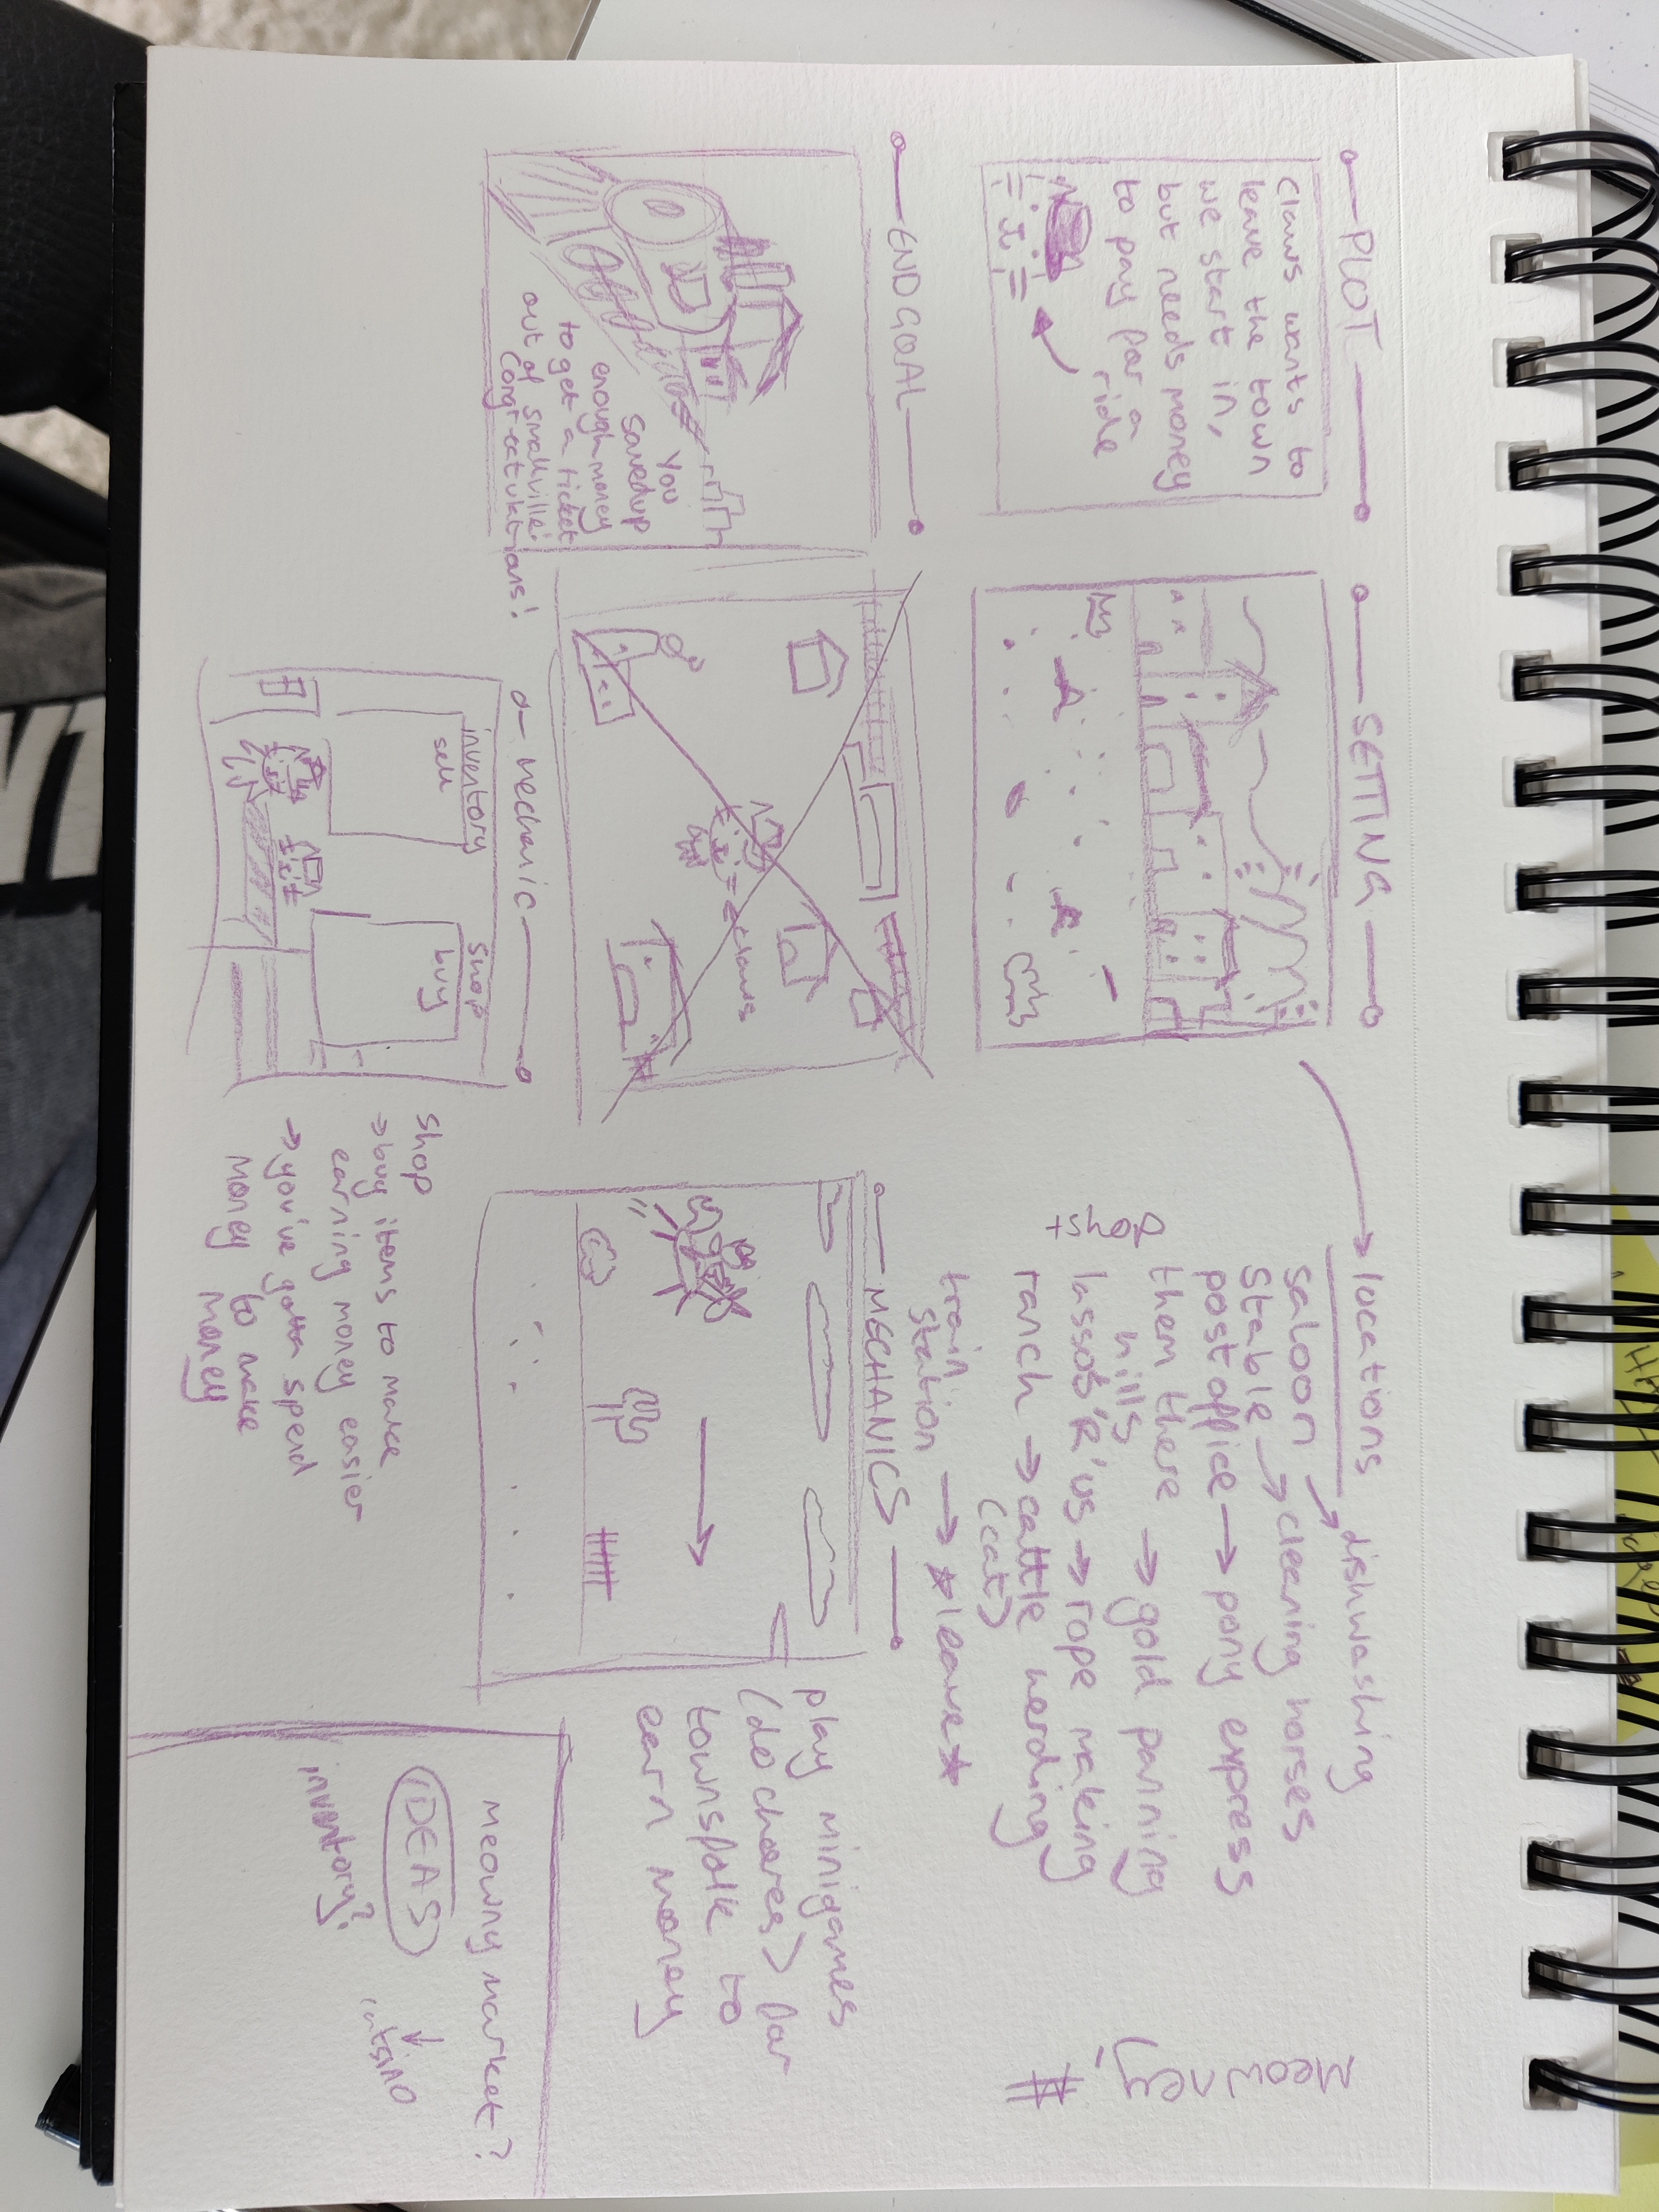 PLOT
Claws wants to
leave the town
we start in,
but needs money
to pay for a
ride
SETTING
locations
saloon → dishwashing
stable → cleaning horses
post office → pony express
them there
hills → gold panning
lasso's 'R' us → rope making
ranch → cattle herding
(cat)
train
station → *leave*
Meowney
END GOAL
You
saved up
enough money
to get a ticket
out of smallville.
Congratulations!
= claws
MECHANICS
play minigames
(do chores) for
townsfolk to
earn money
mechanic
inventory
sell
shop
buy
shop
→ buy items to make
earning money easier
→ you've gotta spend
money to make
money
meowny market?
IDEAS
catsino
inventory?